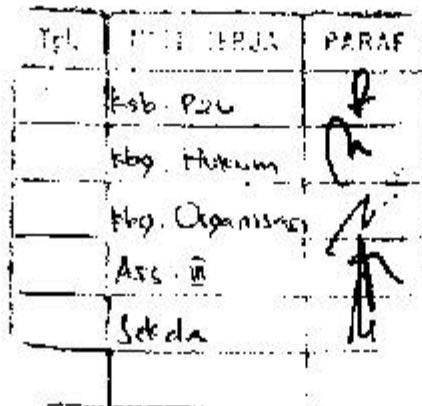 Tgl. UNIT KERJA PARAF
Ksb. P2U
Kbg. Hukum
Kbg. Organisasi
Ass. III
Sekda